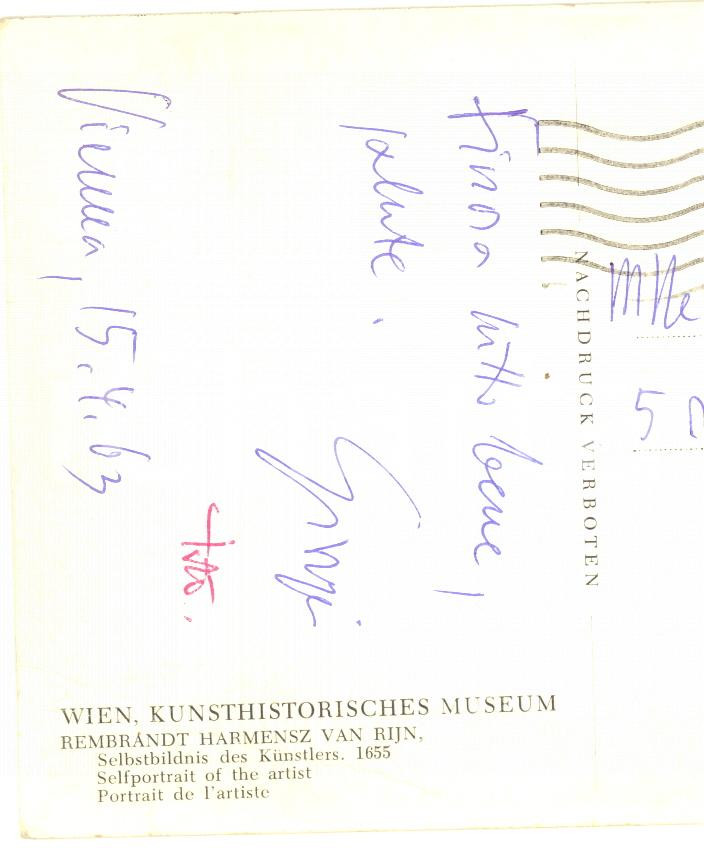 Vienna, 15.4.63
Finora tutto bene,
salute.
NACHDRUCK VERBOTEN
Mlle
50
WIEN, KUNSTHISTORISCHES MUSEUM
REMBRANDT HARMENSZ VAN RIJN,
Selbstbildnis des Künstlers. 1655
Selfportrait of the artist
Portrait de l'artiste